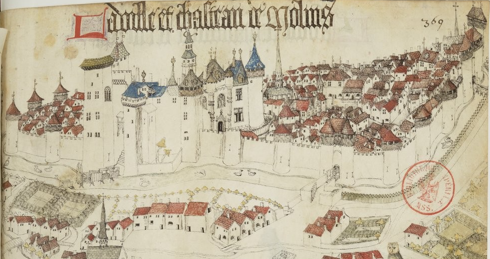 La ville et chasteau de Molins
369